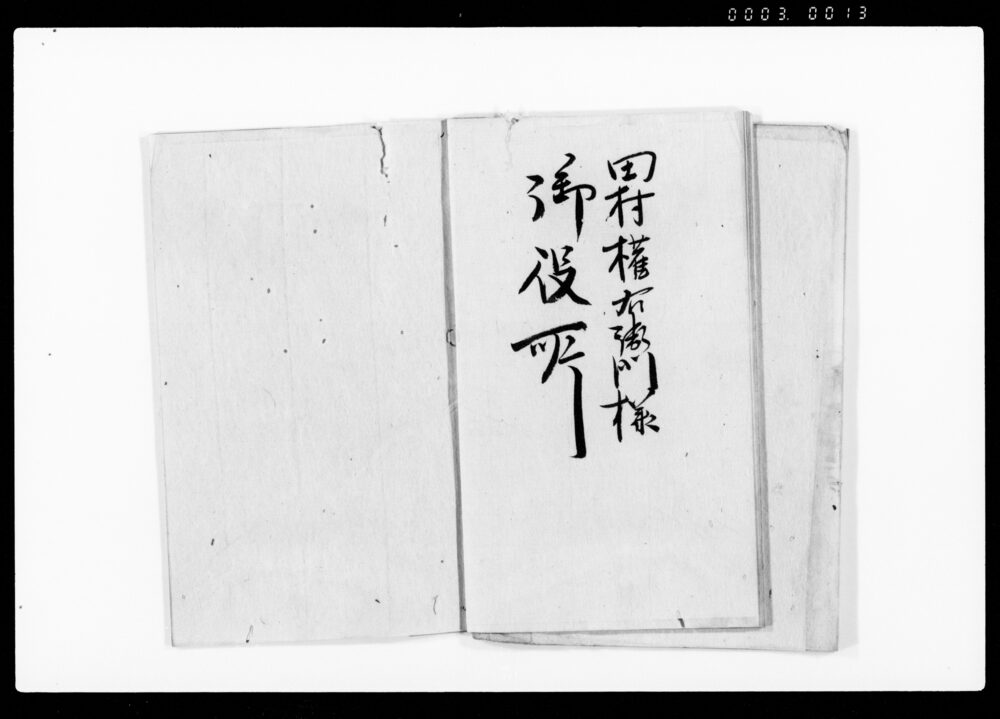 0003. 0013
田村權右衛門様
御役所